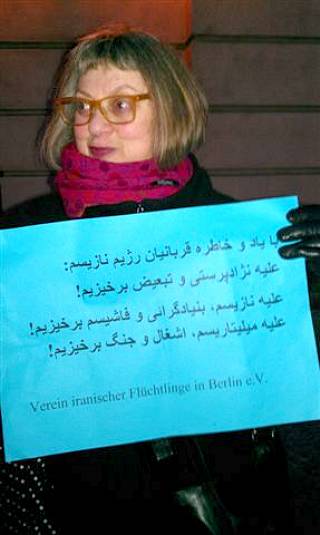 با یاد و خاطره قربانیان رژیم نازیسم:
علیه نژادپرستی و تبعیض برخیزیم!
علیه نازیسم، بنیادگرائی و فاشیسم برخیزیم!
علیه میلیتاریسم، اشغال و جنگ برخیزیم!
Verein iranischer Flüchtlinge in Berlin e.V.